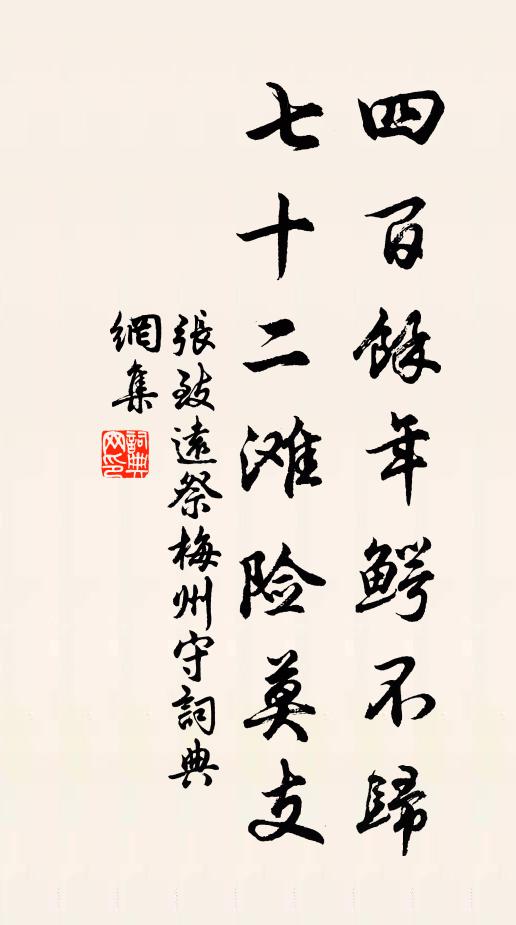 四百餘年鳄不歸
七十二滩险莫支
張致遠祭梅州守詞典
網集
詞典網印